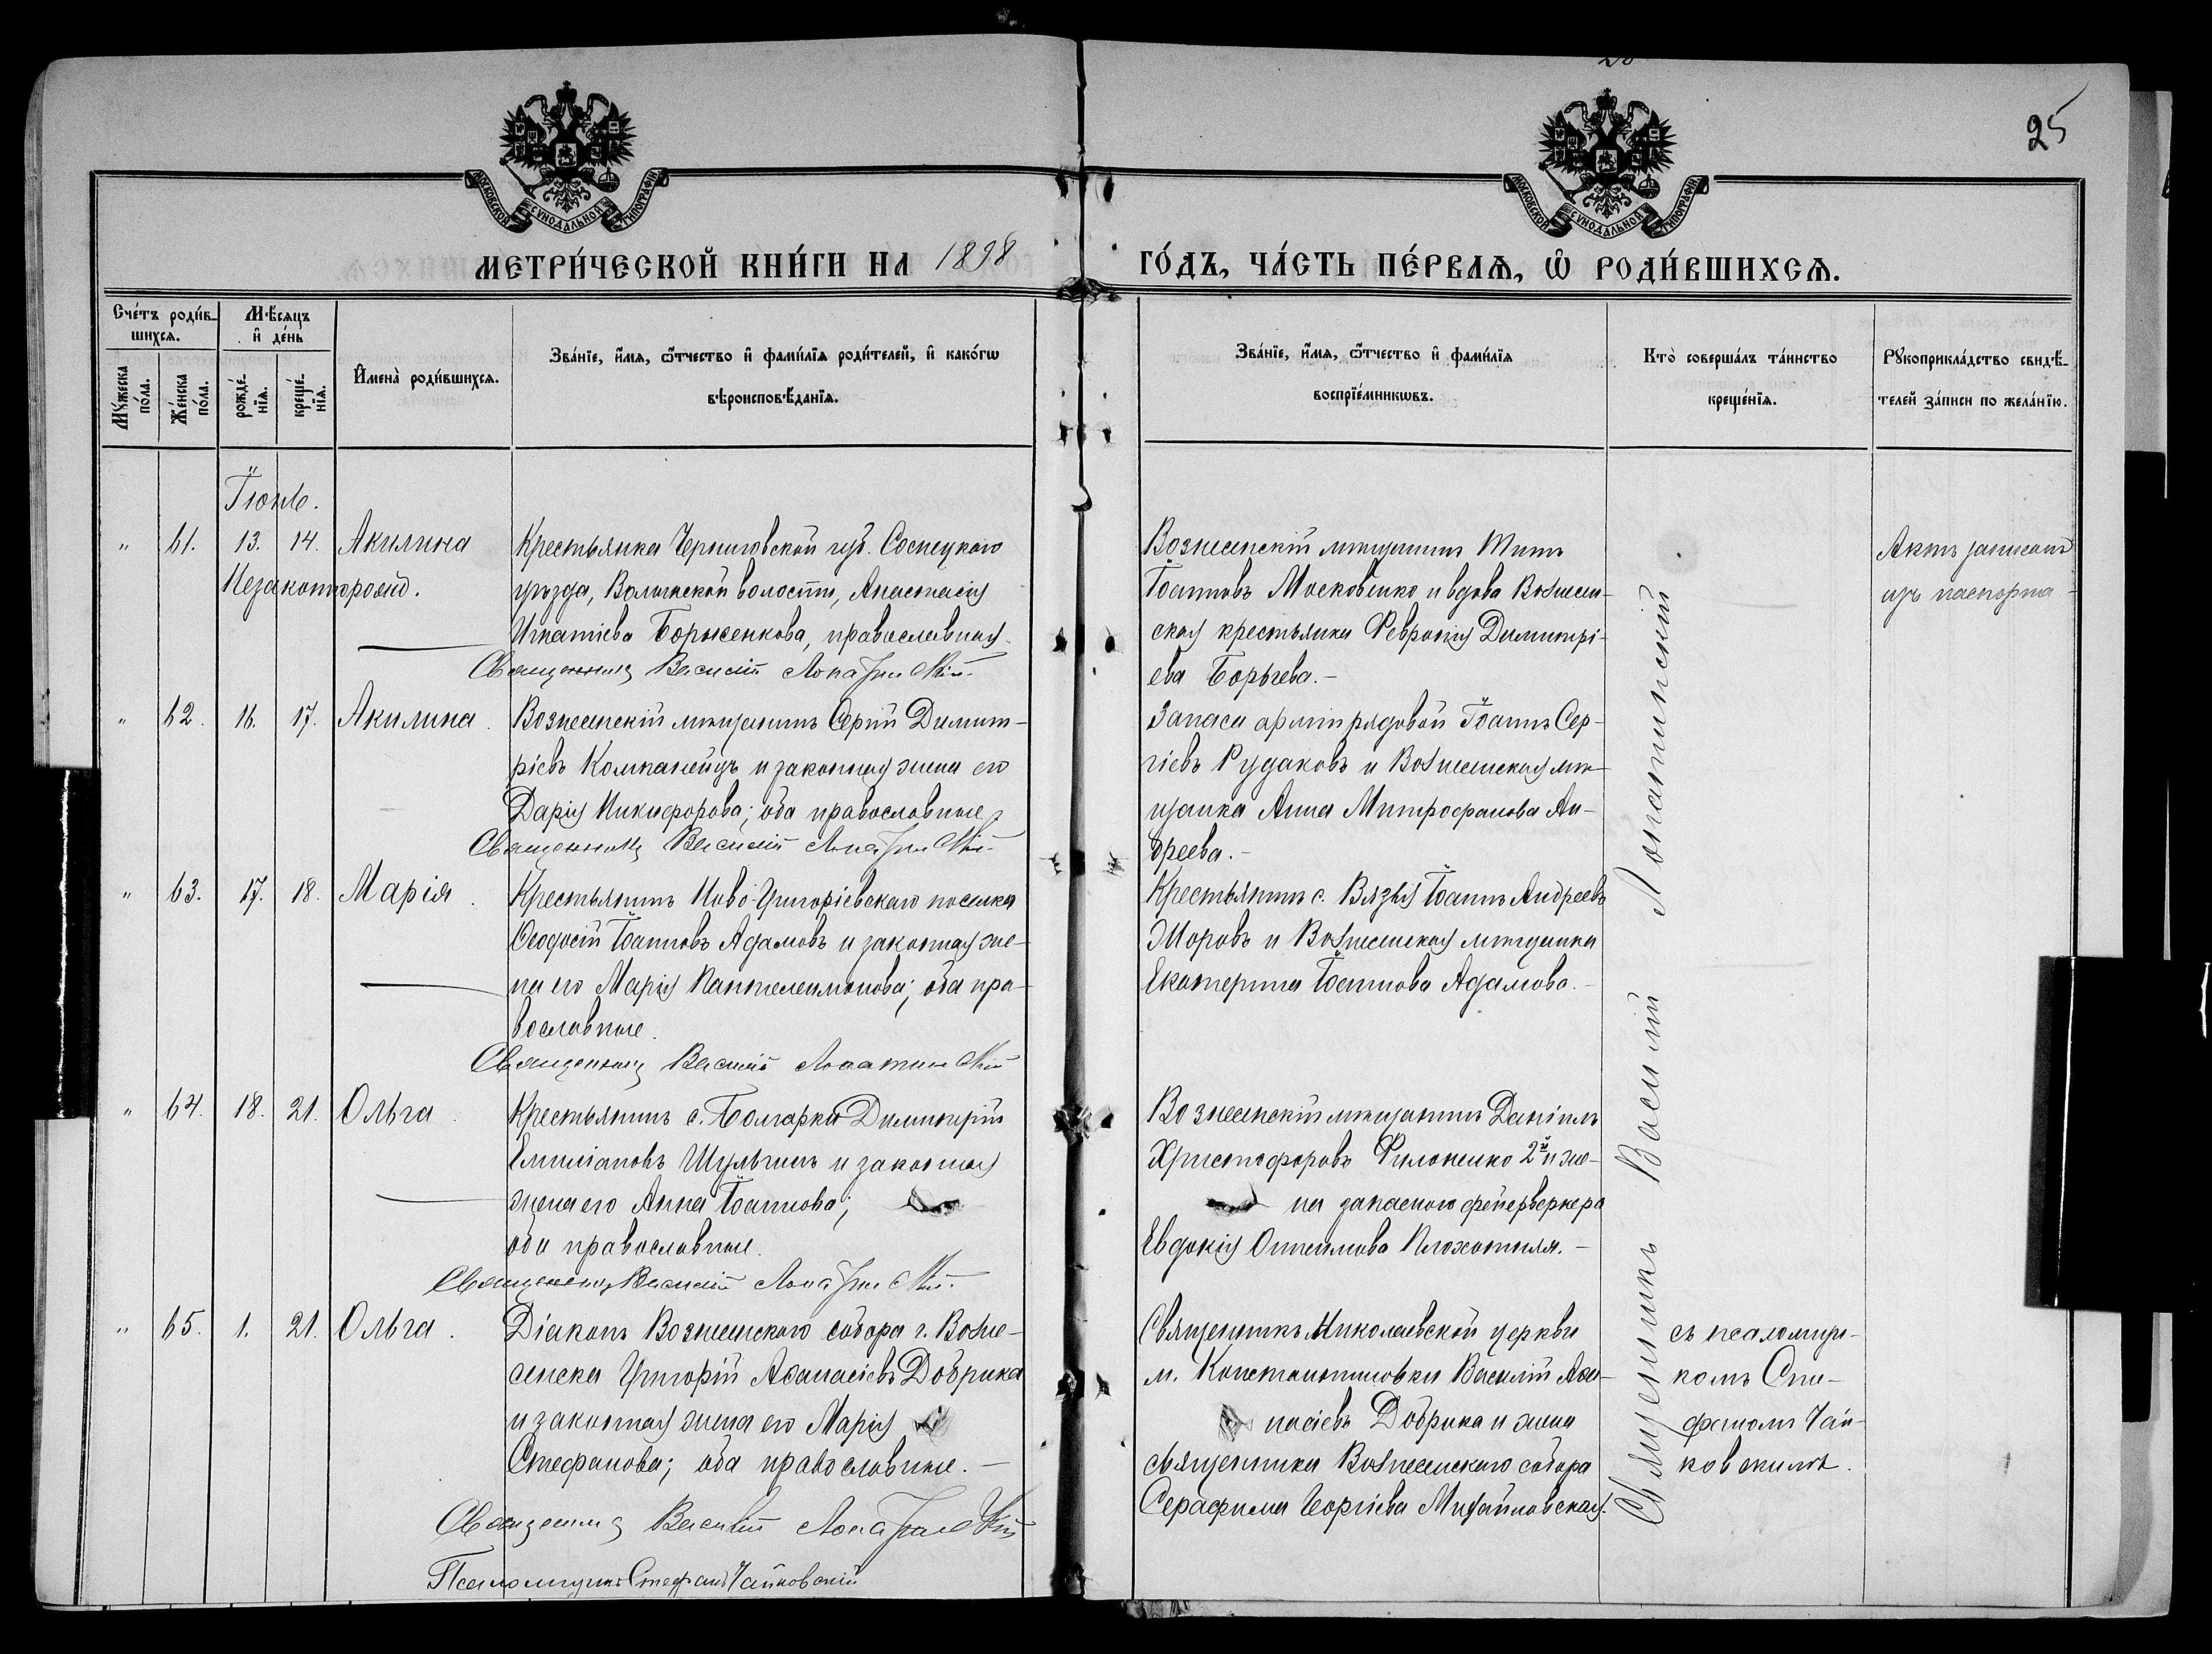 25
МОСКОВСКОЙ СѴНОДАЛЬНОЙ ТИПОГРАФІИ
МОСКОВСКОЙ СѴНОДАЛЬНОЙ ТИПОГРАФІИ
МЕТРИ́ЧЕСКОЙ КНИ́ГИ НА 1898 ГО́ДЪ, ЧА́СТЬ ПЕ́РВАѦ, Ѡ҆ РОДИ́ВШИХСѦ.
Сче́тъ роди́в-
шихсѧ.
Мꙋ́жеска по́ла.
Же́нска по́ла.
Мѣ́сѧцъ
и҆ де́нь
рожде́-
нїѧ.
креще́-
нїѧ.
И҆мена̀ роди́вшихсѧ.
Зва́нїе, и҆́мѧ, ѻ҆́тчество и҆ фами́лїѧ роди́телей, и҆ како́гѡ
вѣроисповѣ́данїѧ.
Зва́нїе, и҆́мѧ, ѻ҆́тчество и҆ фами́лїѧ
воспрїе́мникѡвъ.
Кто̀ соверша́лъ та́инство
креще́нїѧ.
Рꙋкоприкла́дство свидѣ́-
телей за́писи по жела́нїю.
Іюнь.
" 61. 13. 14. Акилина
Незаконнорожд.
Крестьянка Черниговской губ. Сосницкаго
уѣзда, Волынской волости, Анастасія
Игнатіева Борисенкова, православная.
Священникъ Василій Лопатинскій
Вознесенскій мѣщанинъ Титъ
Іоанновъ Московченко и вдова Вознесен-
ская крестьянка Февронія Димитрі-
ева Борычева.–
Актъ записанъ
изъ паспорта
" 62. 16. 17. Акилина.
Вознесенскій мѣщанинъ Сергій Димит-
ріевъ Компанейцъ и законная жена его
Дарія Никифорова; оба православные
Священникъ Василій Лопатинскій
Запаса арміи рядовой Іоаннъ Сер-
гіевъ Рудаковъ и Вознесенская мѣ-
щанка Анна Митрофанова Ан-
дреева.–
" 63. 17. 18. Марія.
Крестьянинъ Ново-Григоріевскаго поселка
Ѳеодосій Іоанновъ Адамовъ и законная же-
на его Марія Пантелеимонова; оба пра-
вославные.
Священникъ Василій Лопатинскій
Крестьянинъ с. Іоаннъ Андреевъ
и Вознесенская мѣщанка
Екатерина Іоаннова Адамова.–
" 64. 18. 21. Ольга.
Крестьянинъ с. Болгарки Димитрій
Емиліановъ Шульгинъ и законная
жена его Анна Іоаннова;
оба православные.
Священникъ Василій Лопатинскій
Вознесенскій мѣщанинъ Даніилъ
Христофоровъ Филоненко 2й и же-
на запаснаго фейерверкера
Евдокія Плохотняя.–
" 65. 1. 21. Ольга.
Діаконъ Вознесенскаго собора г. Возне-
сенска Григорій Аѳанасіевъ Добрика
и законная жена его Марія
Стефанова; оба православные.–
Священникъ Василій Лопатинскій
Псаломщикъ Стефанъ Чайковскій
Священникъ Николаевской церкви
м. Константиновки Василій Аѳа-
насіевъ Добрика и жена
священника Вознесенскаго собора
Серафима Георгіева Михайловская.
Священникъ Василій Лопатинскій
съ псаломщи-
комъ Сте-
фаномъ Чай-
ковскимъ.